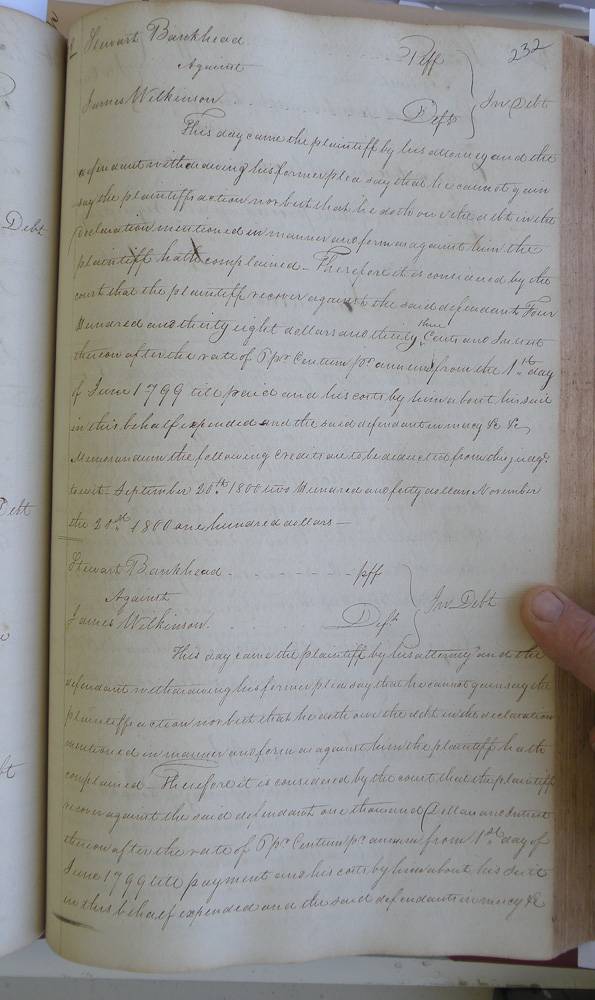 232
Stewart Bankhead Plff
Against
James Wilkinson Deft } In Debt
This day came the plaintiff by his attorney and the
defendant withdrawing his former plea say that he cannot gain
say the plaintiffs action nor but that he doth owe the debt in the
Declaration mentioned in manner and form as against him the
plaintiff hath complained - Therefore it is considered by the
court that the plaintiff recover against the said defendant Four
Hundred and thirty eight dollars and thirty three Cents and Interest
thereon after the rate of 6 pr Centum pr annum from the 1st day
of June 1799 till paid and his costs by him about his suit
in this behalf expended and the said defendant in mercy &c &c
Memorandum the following Credits are to be deducted from the judgt
towit- September 20th 1800 two Hundred and fifty dollars November
the 20th 1800 one hundred dollars -
Stewart Bankhead - - - - - - plff
Against
James Wilkinson. Deft } In Debt
This day came the plaintiff by his attorney and the
defendant withdrawing his former plea say that he cannot gain say the
plaintiffs action nor but that he doth owe the debt in the declaration
mentioned in manner and form as against him the plaintiff hath
complained - Therefore it is considered by the court that the plaintiff
recover against the said defendant one thousand Dollars and Interest
thereon after the rate of 6 pr Centum pr annum from 1st day of
June 1799 till payment and his costs by him about his suit
in this behalf expended and the said defendant in mercy &c
Debt
Debt